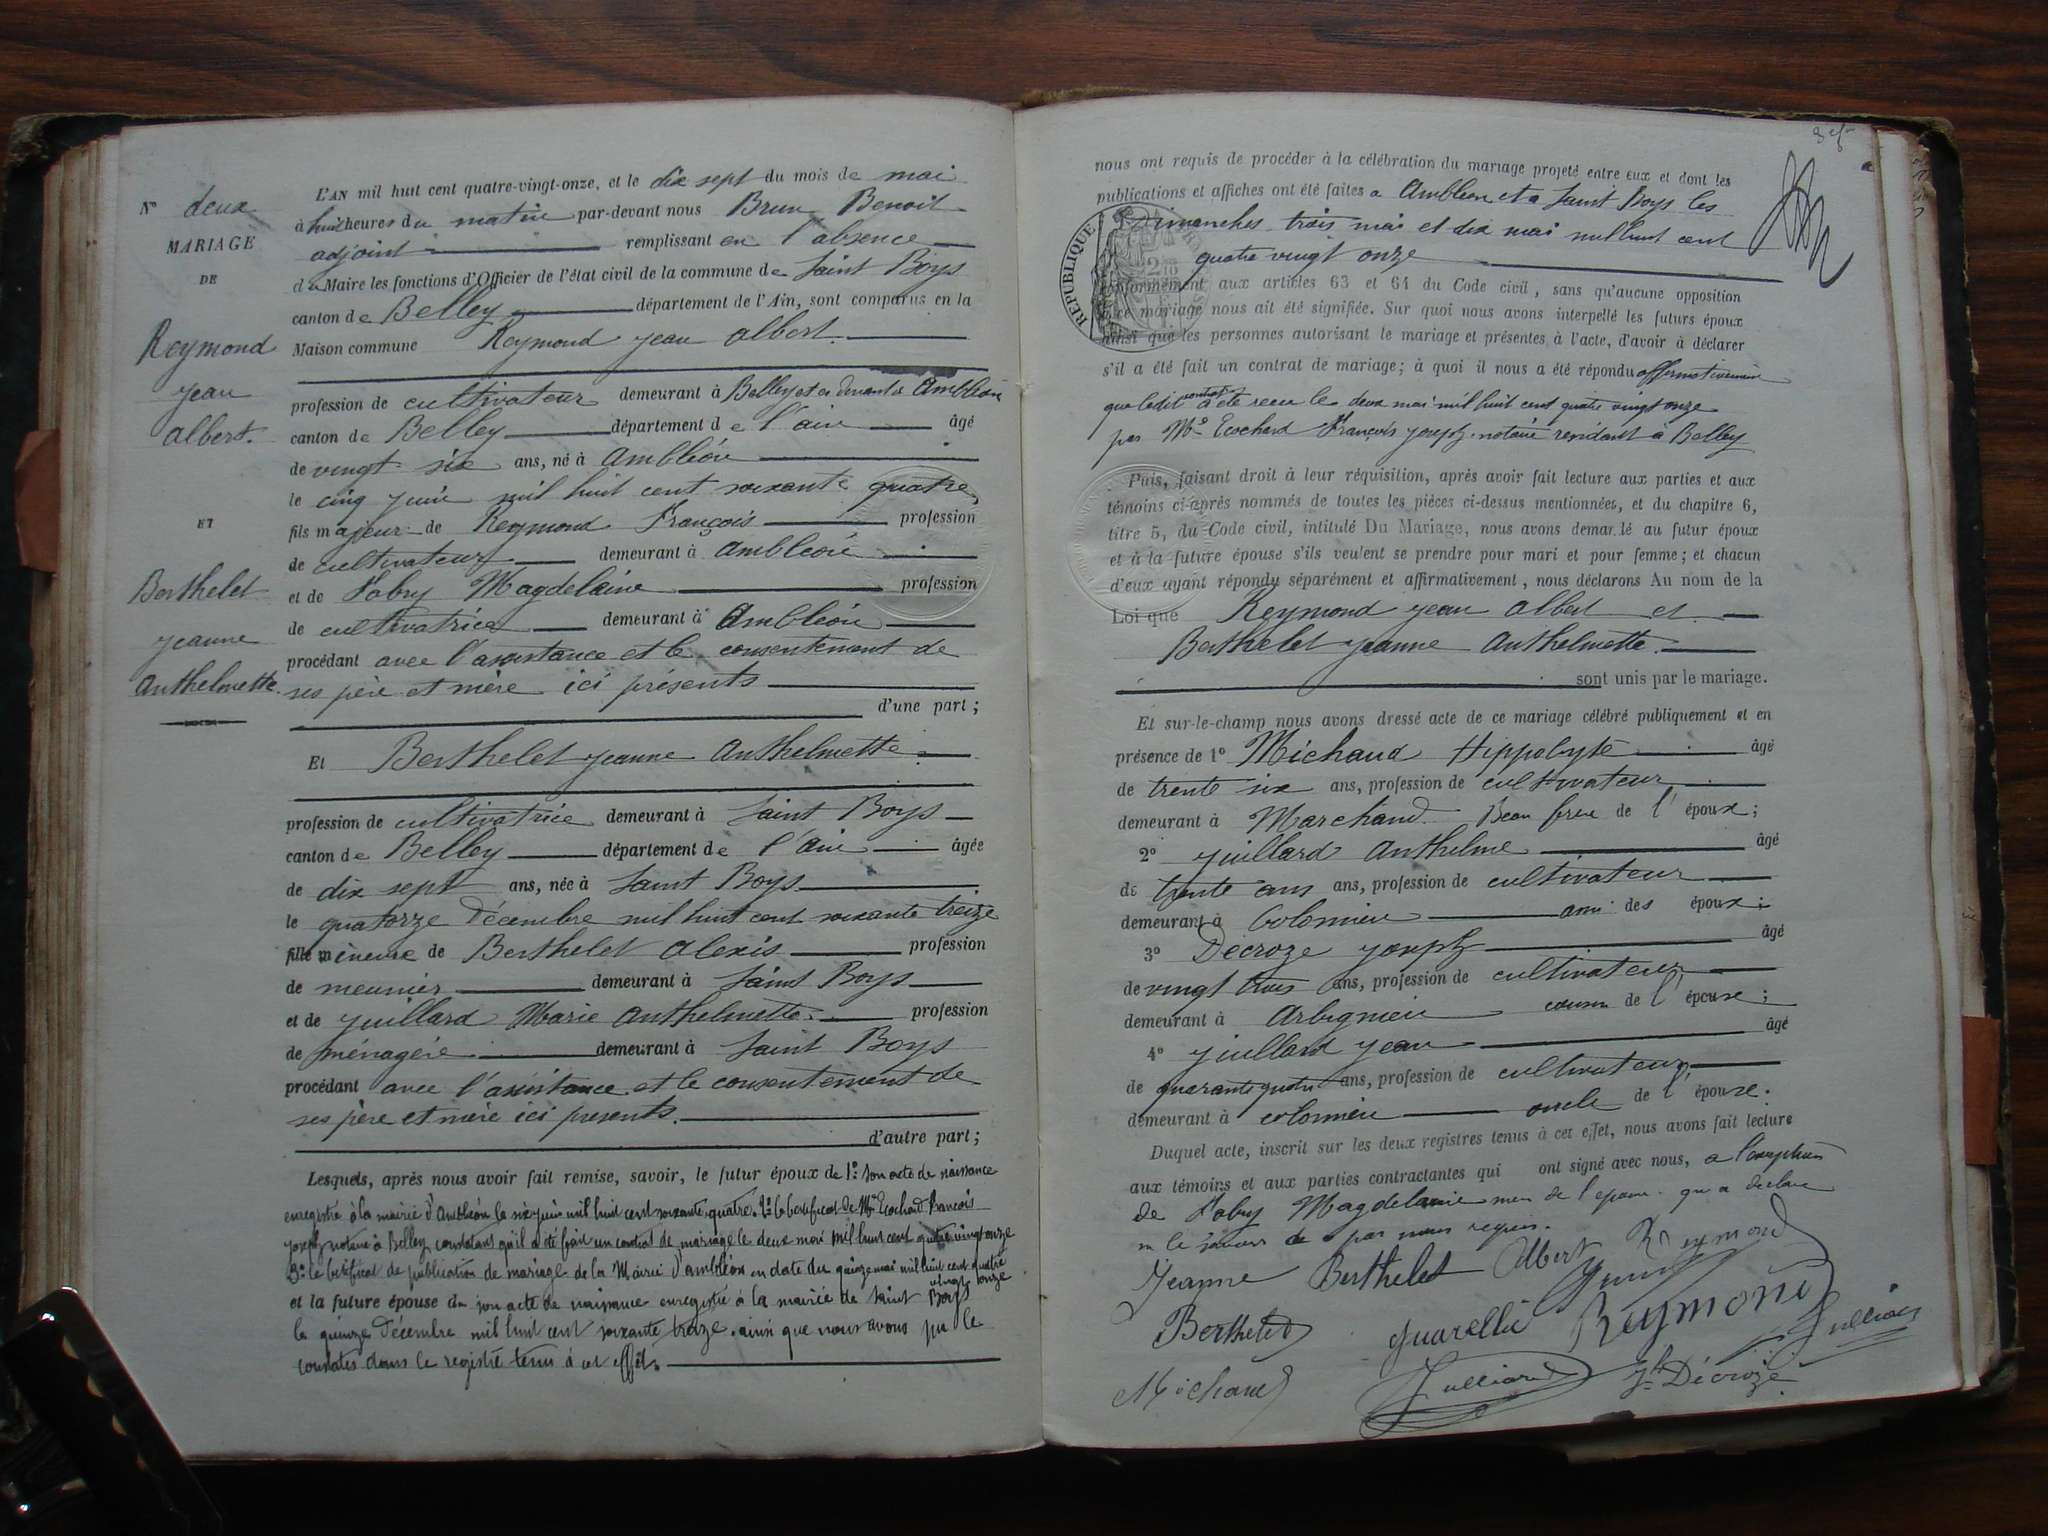 N° deux
MARIAGE
DE
Reymond
Jean
Albert.
ET
Berthelet
Jeanne
Anthelmette.
L'AN mil huit cent quatre-vingt-onze, et le dix sept du mois de mai
à huit heures du matin par-devant nous Brun Benoit
adjoint remplissant en l'absence
du Maire les fonctions d'Officier de l'état civil de la commune de Saint Boys
canton de Belley département de l'Ain, sont comparus en la
Maison commune Reymond Jean Albert.
profession de cultivateur demeurant à Belley et en devant à Ambléon
canton de Belley département de l'ain âgé
de vingt six ans, né à Ambléon
le cinq juin mil huit cent soixante quatre
fils majeur de Reymond François profession
de cultivateur demeurant à Ambléon
et de Fabry Magdelaine profession
de cultivatrice demeurant à Ambléon
procédant avec l'assistance et le consentement de
ses père et mère ici présents
d'une part;
Et Berthelet Jeanne Anthelmette
profession de cultivatrice demeurant à Saint Boys
canton de Belley département de l'Ain âgée
de dix sept ans, née à Saint Boys
le quatorze Décembre mil huit cent soixante treize
fille mineure de Berthelet Alexis profession
de meunier demeurant à Saint Boys
et de Juillard Marie Anthelmette profession
de ménagère demeurant à Saint Boys
procédant avec l'assistance et le consentement de
ses père et mère ici presents.
d'autre part;
Lesquels, après nous avoir fait remise, savoir, le futur époux de 1° son acte de naissance
enregistré à la mairie d'Ambléon le six juin mil huit cent soixante quatre. 2° le certificat de Me Ecochard François
Joseph notaire à Belley constatant qu'il a été fait un contrat de mariage le deux mai mil huit cent quatre vingt onze
3° le certificat de publication de mariage de la Mairie d'ambléon en date du quinze mai mil huit cent quatre
vingt onze
et la future épouse de son acte de naissance enregistré à la mairie de Saint Boys
le quinze Décembre mil huit cent soixante treize. ainsi que nous avons pu le
constater dans le registre tenu à cet effet.
nous ont requis de procéder à la célébration du mariage projeté entre eux et dont les
publications et affiches ont été faites à Ambléon et à Saint Boys les
Dimanches trois mai et dix mai mil huit cent
quatre vingt onze
RÉPUBLIQUE
conformément aux articles 63 et 64 du Code civil, sans qu'aucune opposition
à ce mariage nous ait été signifiée. Sur quoi nous avons interpellé les futurs époux
ainsi que les personnes autorisant le mariage et présentes à l'acte, d'avoir à déclarer
s'il a été fait un contrat de mariage; à quoi il nous a été répondu affirmativement
que ledit contrat a été recu le deux mai mil huit cent quatre vingt onze
par Me Ecochard François Joseph notaire residant à Belley
Puis, faisant droit à leur réquisition, après avoir fait lecture aux parties et aux
témoins ci-après nommés de toutes les pièces ci-dessus mentionnées, et du chapitre 6,
titre 5, du Code civil, intitulé Du Mariage, nous avons demandé au futur époux
et à la future épouse s'ils veulent se prendre pour mari et pour femme; et chacun
d'eux ayant répondu séparément et affirmativement, nous déclarons Au nom de la
Loi que Reymond Jean Albert et
Berthelet Jeanne Anthelmette.
sont unis par le mariage.
Et sur-le-champ nous avons dressé acte de ce mariage célébré publiquement et en
présence de 1° Michaud Hippolyte âgé
de trente six ans, profession de cultivateur
demeurant à Marchand Beau frère de l'époux;
2° Juillard Anthelme âgé
de trente ans ans, profession de cultivateur
demeurant à Colomieu ami des époux;
3° Décroze Joseph âgé
de vingt trois ans, profession de cultivateur
demeurant à Arbignieu cousin de l'épouse;
4° Juillard Jean âgé
de quarante quatre ans, profession de cultivateur
demeurant à colomieu oncle de l'épouse.
Duquel acte, inscrit sur les deux registres tenus à cet effet, nous avons fait lecture
aux témoins et aux parties contractantes qui ont signé avec nous, a l'exception
de Fabry Magdelaine mère de l'époux qui a declaré
ne le savoir de par nous requis.
Jeanne Berthelet Albert Reymond
Berthelet Reymond Julliard
Michaud Julliard Jh Décroze